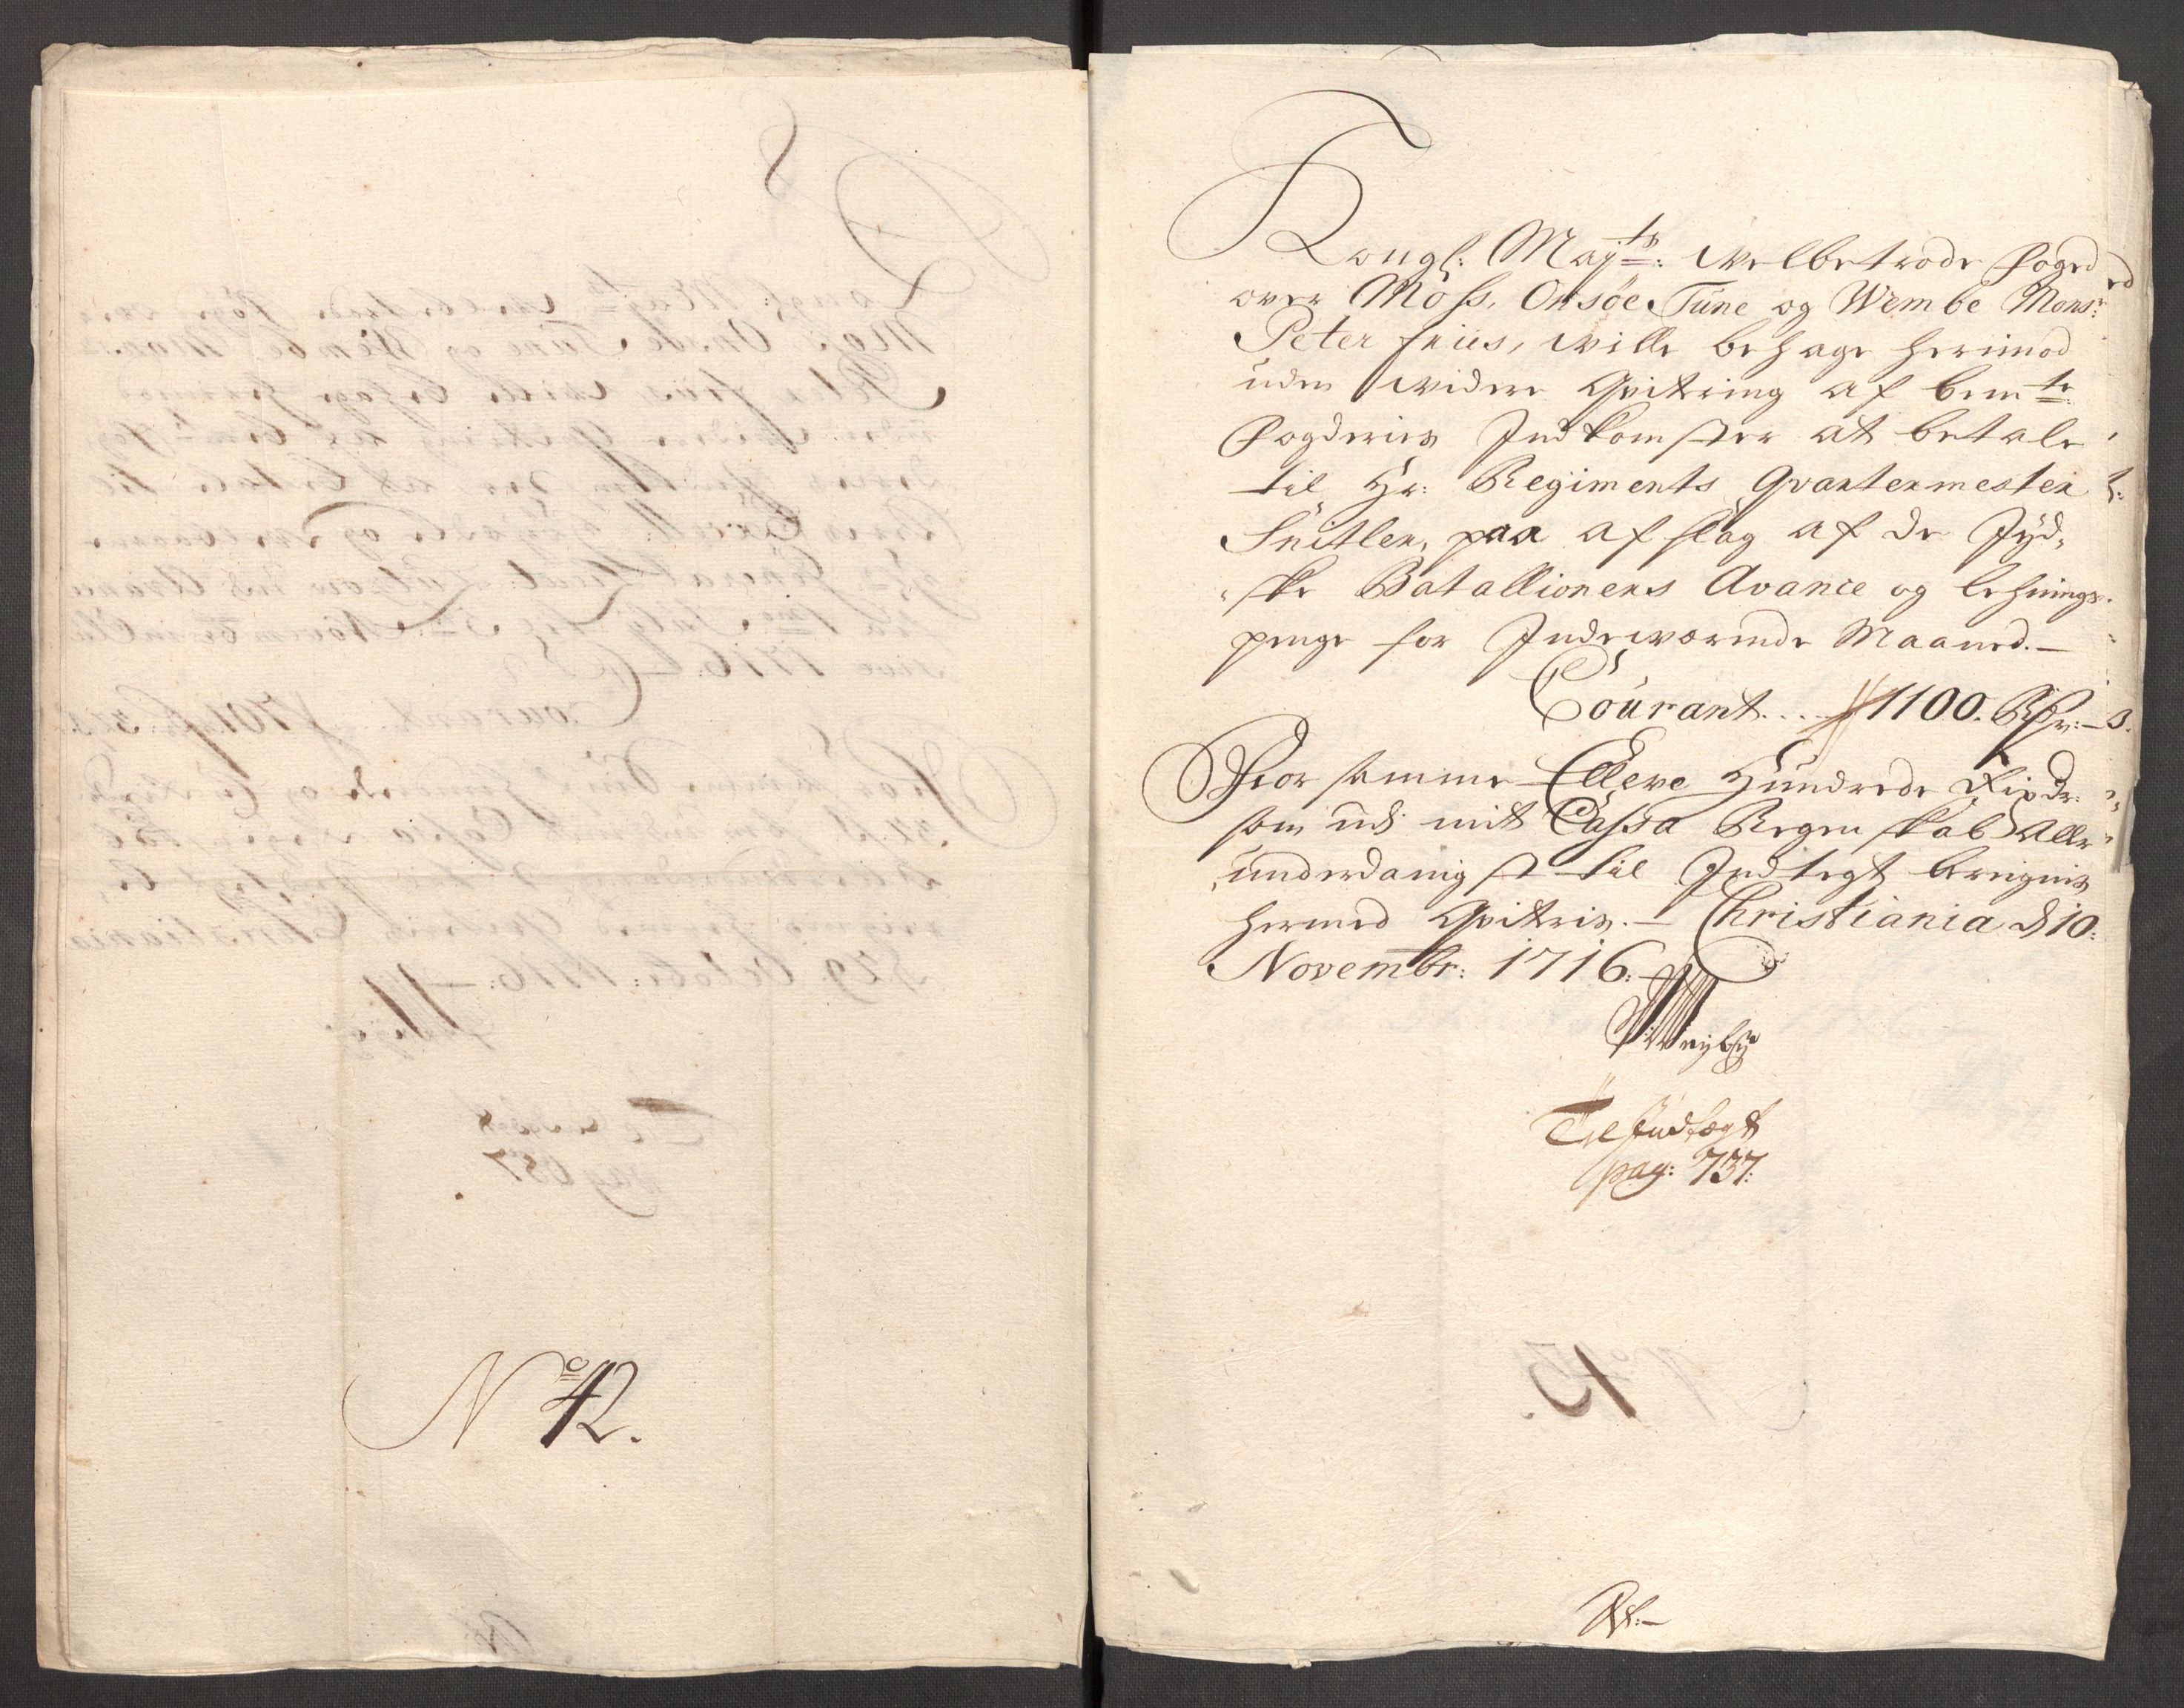 No 42.
Kongl: Mayts: Welbetrode Foged
over Moss, Onsöe Tune og Wembe Monsr:
Peter friis, wille behage herimod
uden widere Qvitering af bemte:
Fogderies Indkomster at betale
til Hr: Regiments Qvartermester
Snitler, paa afslag af de Jyd,
,,ske Batallioners Avance og lehnings
penge for Indeværende Maaned.—
Courant... 1100. Rdr:—
Fior samme Elleve Hundrede Rixdr:
som udj mit Cassa Regenskab Aller
underdanigst til Indtegt bereignes
hermed Qviteris.— Christiania, d 10:
Novembr: 1716:
Til Indtægt
pag: 737: